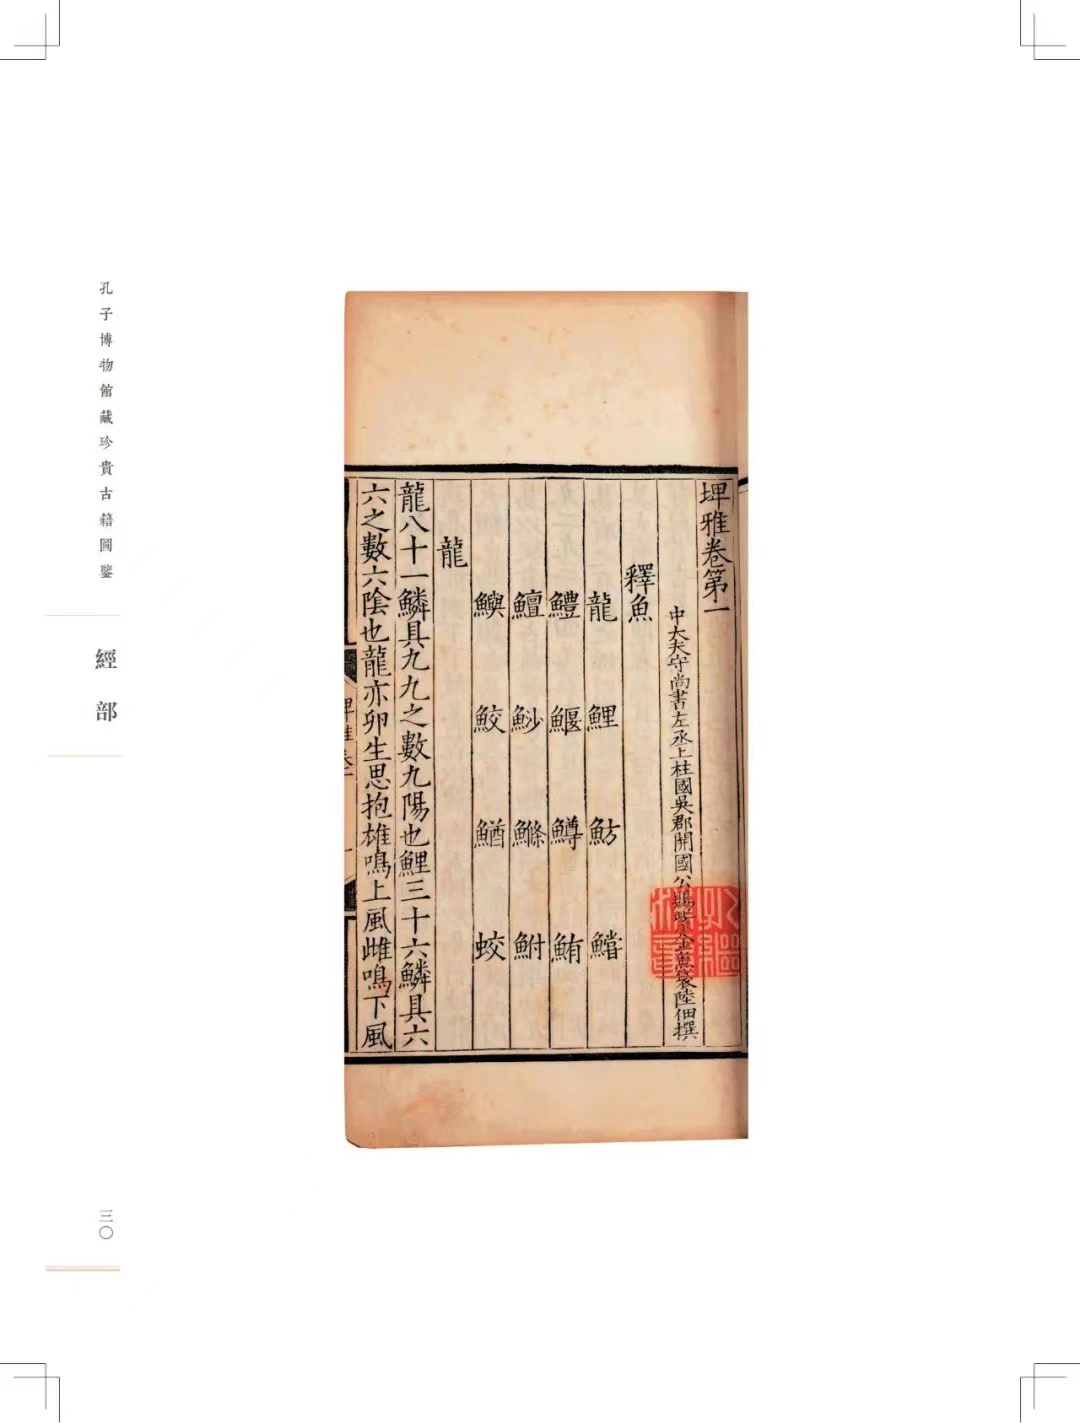 埤雅卷第一
中大夫守尚書左丞上柱國吳郡開國公賜紫金魚袋陸佃撰
釋魚
龍 鯉 魴 鱨
鱧 鰋 鱒 鮪
鱣 魦 鰷 鮒
鱮 鮫 鰌 蛟
龍
龍八十一鱗具九九之數九陽也鯉三十六鱗具六
六之數六陰也龍亦卵生思抱雄鳴上風雌鳴下風
孔子博物館藏珍貴古籍圖鑒
經部
三〇